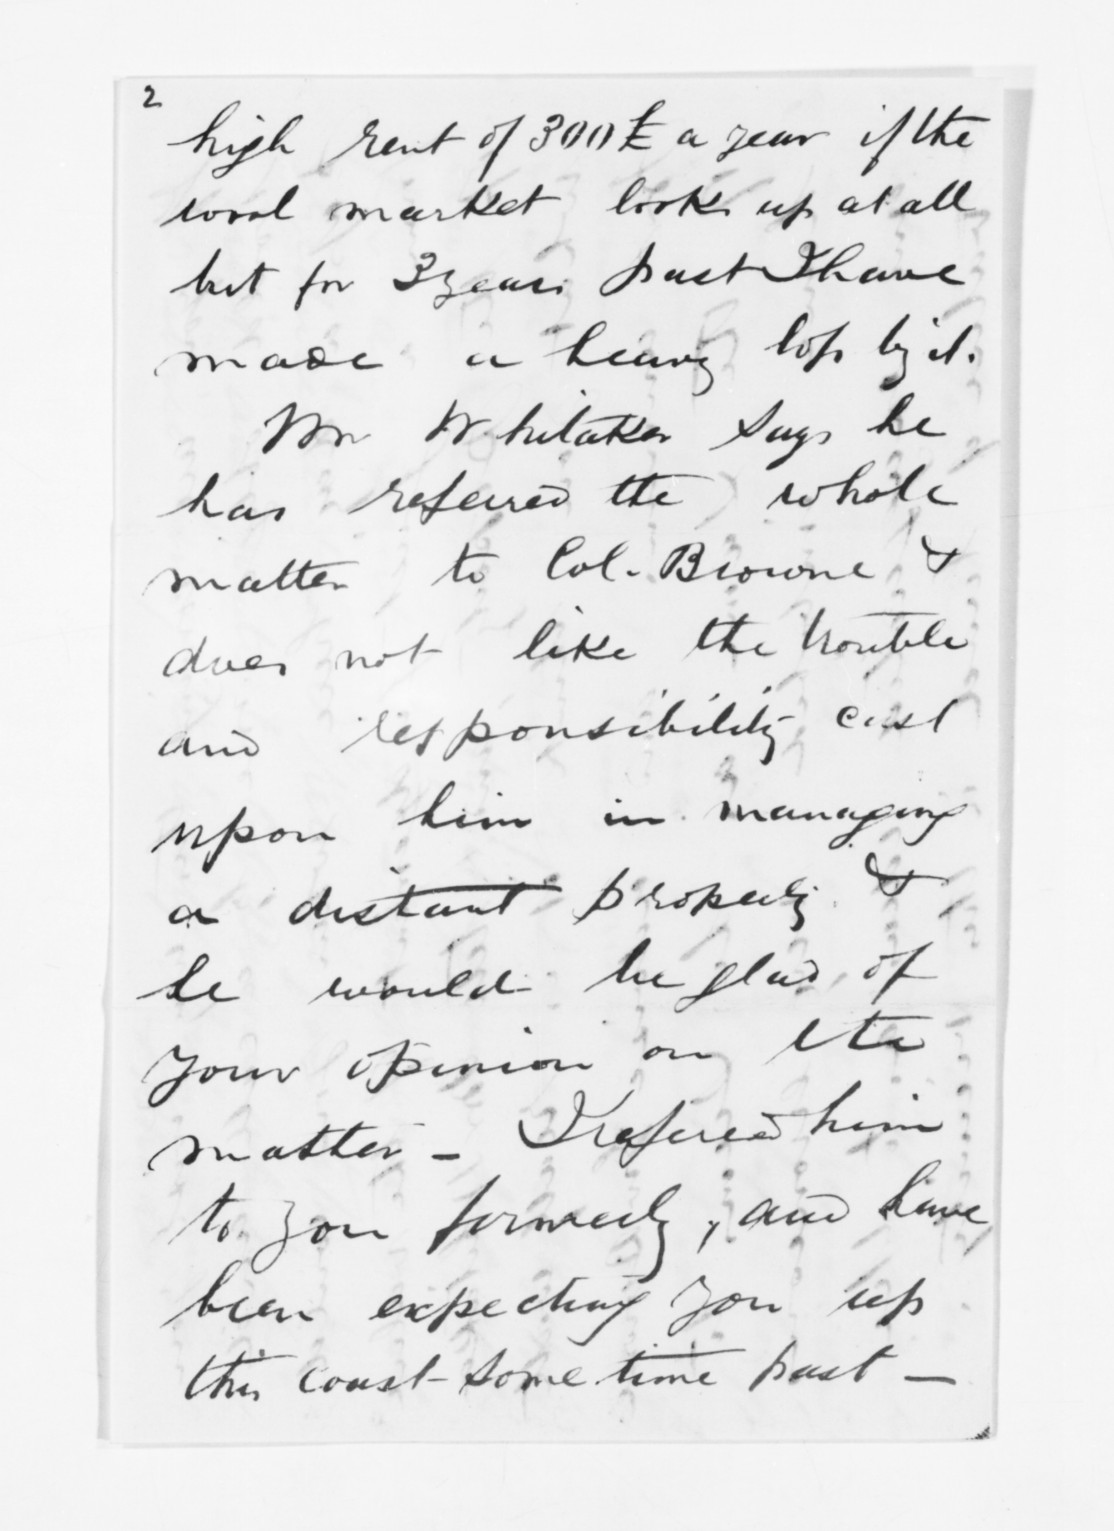 2
high rent of 300£ a year if the
wool market looks up at all
but for 3 years past I have
made a heavy loss by it.
Mr Whitaker says he
has referred the whole
matter to Col. Browne &
does not like the trouble
and responsibility cast
upon him in managing
a distant property &
he would be glad of
your opinion on the
matter - I refered him
to you formerly, and have
been expecting you up
this coast some time past -